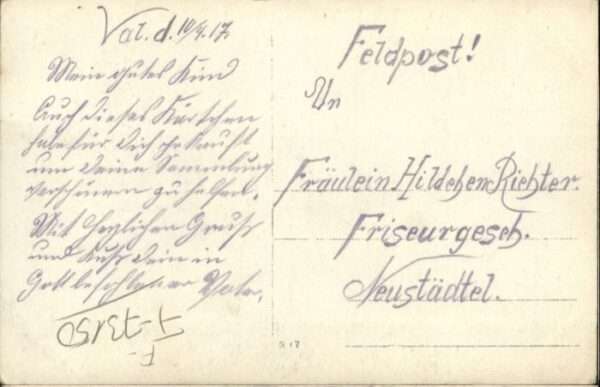 Val. d. 10/4. 17.
Mein gutes Kind
Auch dieses Kärtchen
habe für Dich gekauft
um Deine Sammlung
verschönen zu helfen.
Mit herzlichen Gruß
und Kuß Dein in
Gott befohlener Vater.
Feldpost!
An
Fräulein Hildchen Richter.
Friseurgesch.
Neustädtel.